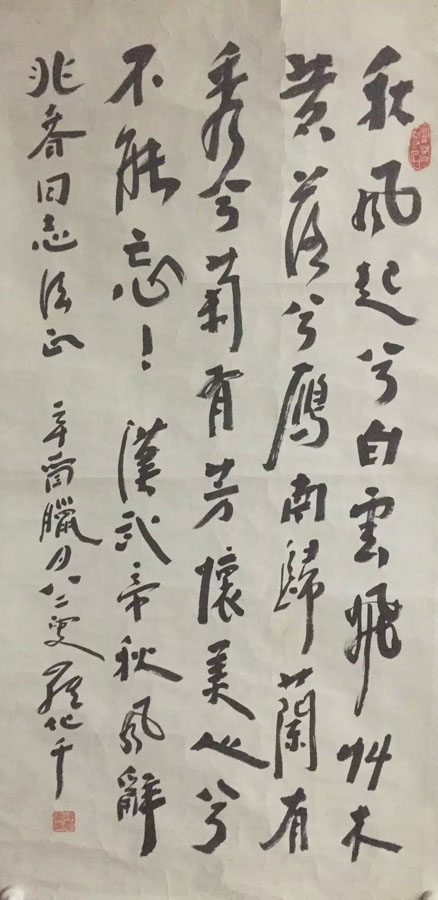 秋風起兮白雲飛艸木
黄落兮鴈南歸蘭有
秀兮菊有芳懷美人兮
不能忘！漢武帝秋風辭
兆春同志法正 辛酉臘月八二叟羅化千